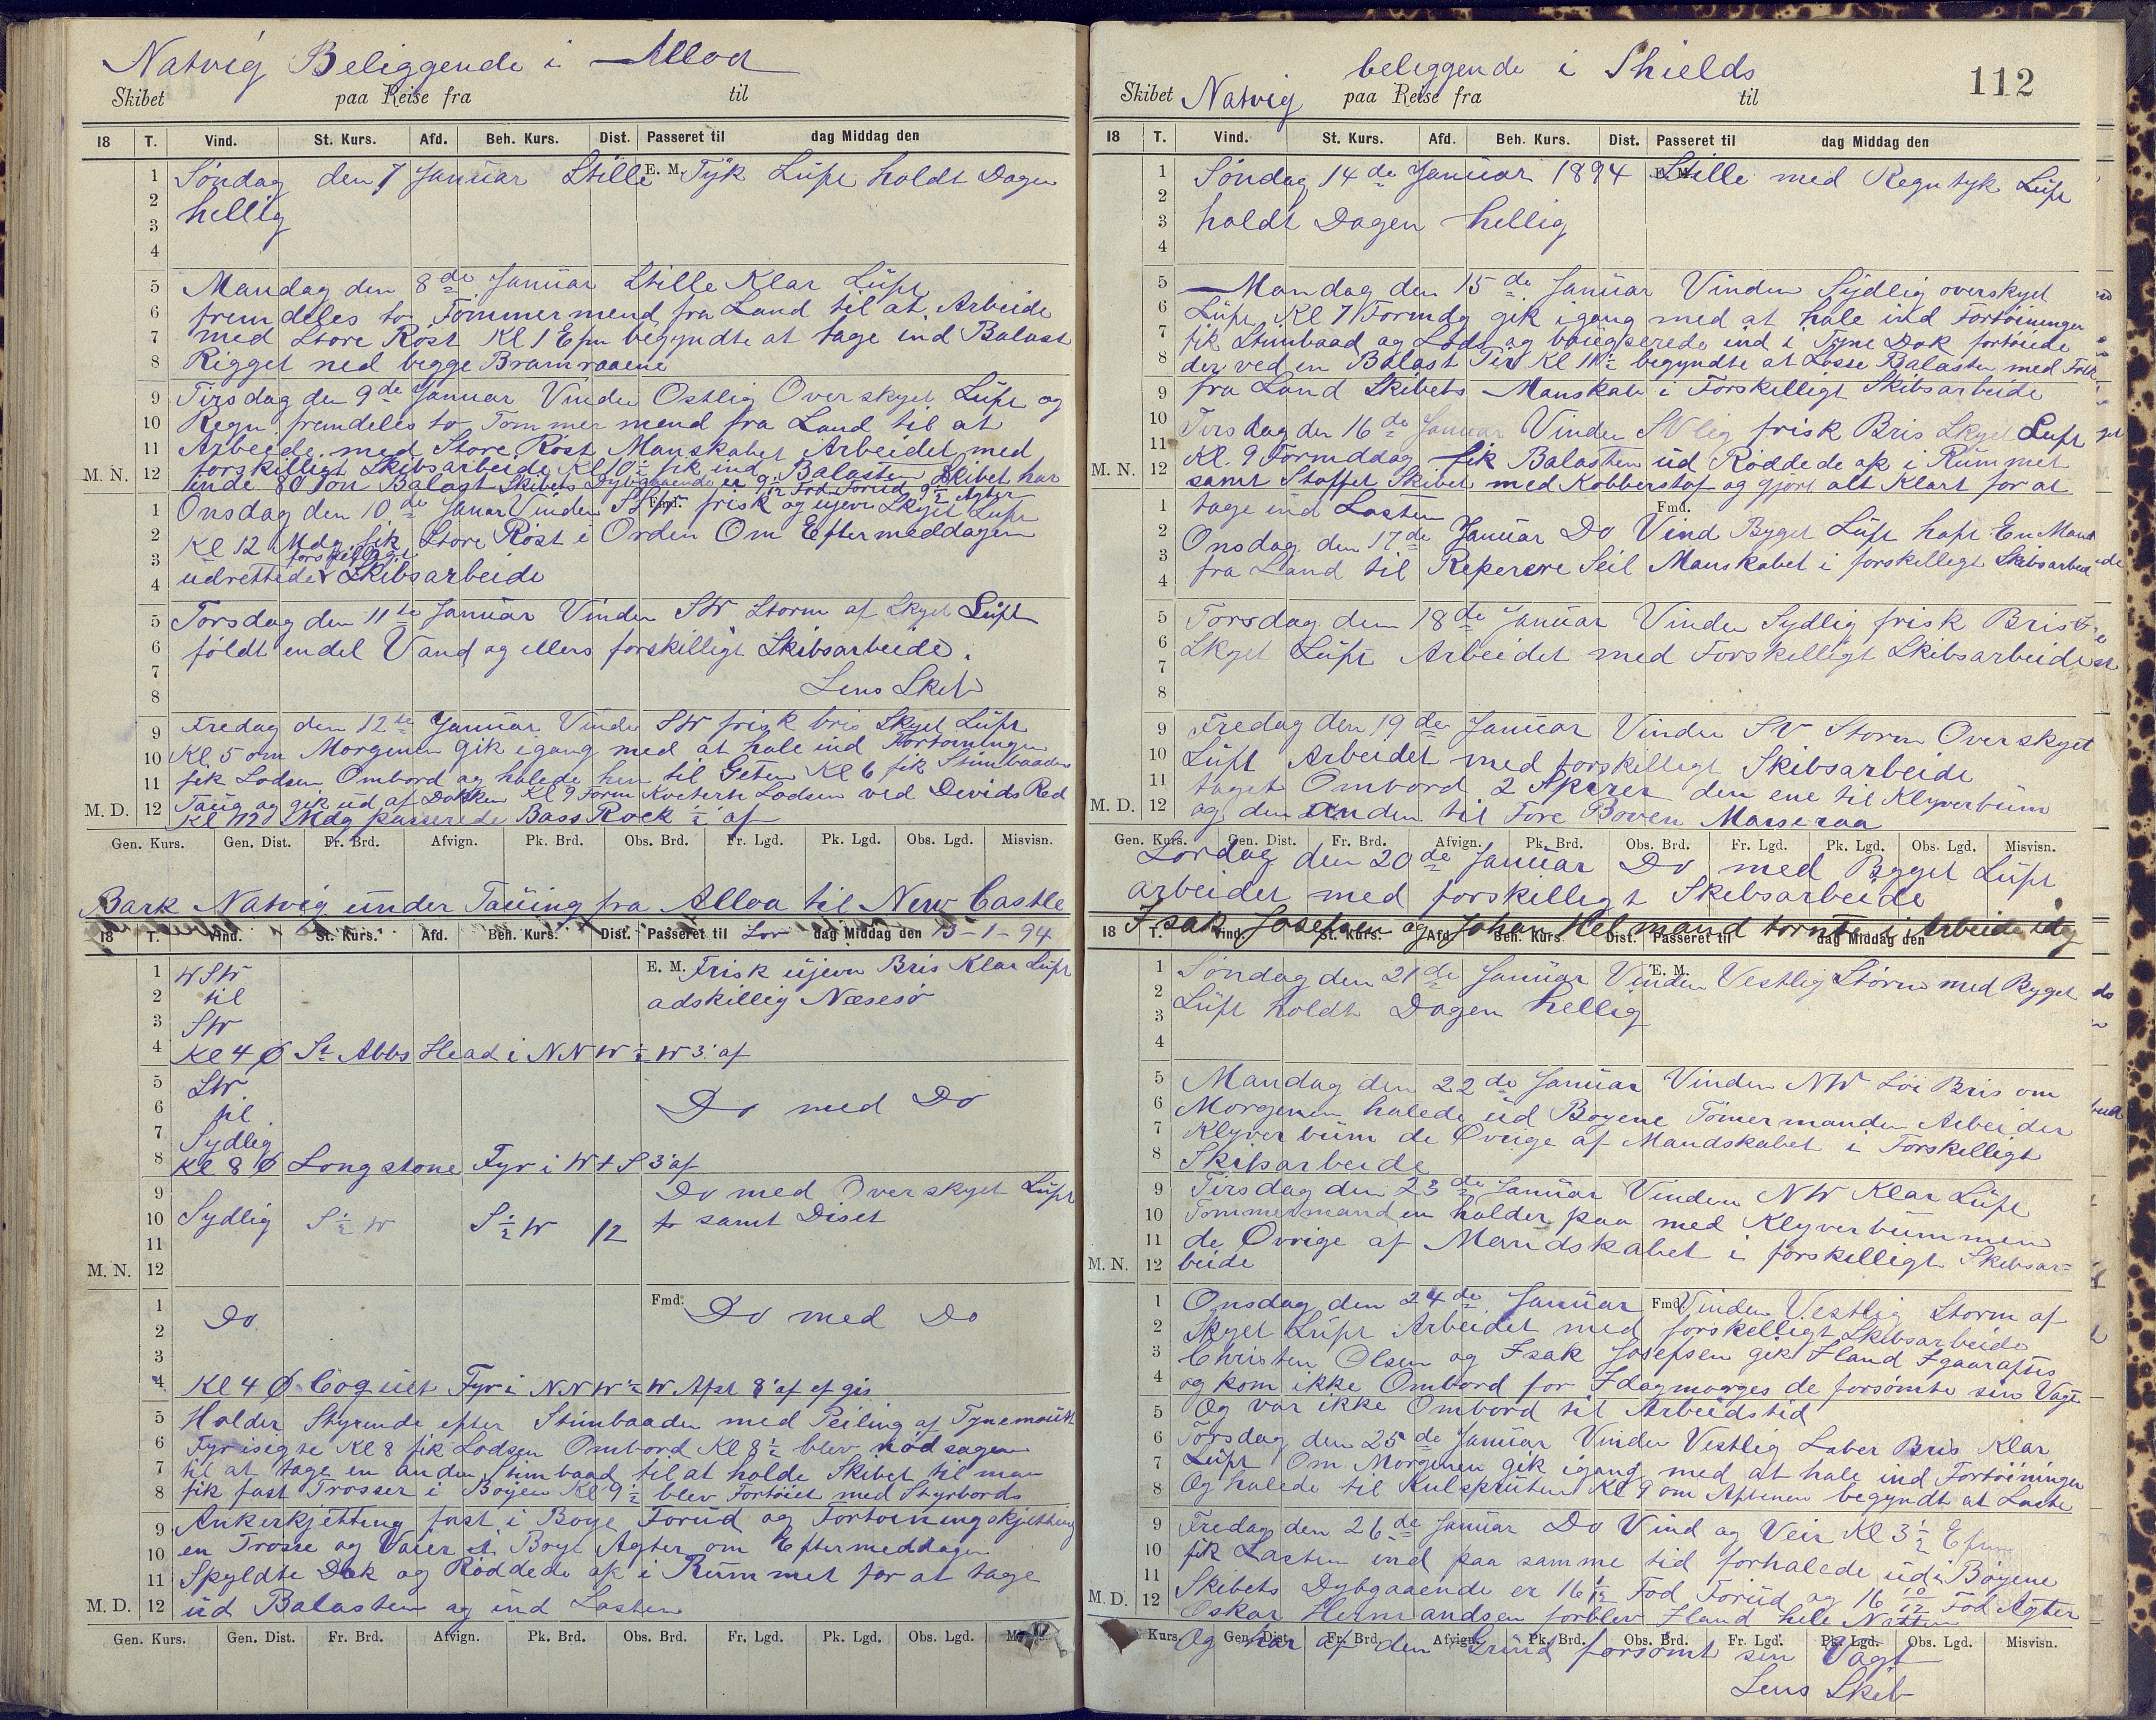 Natvig Beliggende i Alloa
Skibet paa Reise fra til
18 T. Vind. St. Kurs. Afd. Beh. Kurs. Dist. Passeret til dag Middag den
E. M.
1 Söndag den 7 Januar Stille Tÿk Luft holdt Dagen
2 hellig
3
4
5 Mandag den 8de Januar Stille Klar Luft
6 fremdeles to Tömmermend fra Land til at Arbeide
7 med Store Röst Kl 1 Efm begyndte at tage ind Balast
8 Rigget ned begge Bramraaene
9 Tirsdag den 9de Januar Vinden Ostlig Overskyet Luft og
10 Regn fremdeles to Tommermend fra Land til at
11 Arbeide med Store Röst Manskabet Arbeidet med
M. N. 12 forskilligt Skibsarbeide Kl 10 fik ind Balasten Skibet har
inde 80 Ton Balast Skibets Dybgaaende er 9 Fod Forud 9 Agter
Fmd.
1 Onsdag den 10de Januar Vinden SSW frisk og ujevn Skyet Luft
2 Kl 12 Mdg fik Store Röst i Orden Om Eftermeddagen
3 forskilligt
4 udrettedes Skibsarbeide
5 Torsdag den 11te Januar Vinden SW Storm af Skyet Luft
6 földt endel Vand og ellers forskilligt Skibsarbeide.
7 Lens Skib
8
9 Fredag den 12te Januar Vinden SW frisk bris Skyet Luft
10 Kl. 5 om Morgenen gik igang med at hale ind Fortoiningen
11 fik Lodsen Ombord og halede hen til Geten Kl 6 fik Stimbaaden
M. D. 12 Taug og gik ud af Dokken Kl 9 Form Kviterte Lodsen ved Devids Red
Kl 12 Mdg passerede Bass Rock ½' af
Gen. Kurs. Gen. Dist. Fr. Brd. Afvign. Pk. Brd. Obs. Brd. Fr. Lgd. Pk. Lgd. Obs. Lgd. Misvisn.
Bark Natvig under Tauing fra Alloa til New Castle
18 T. Vind. St. Kurs. Afd. Beh. Kurs. Dist. Passeret til Lör dag Middag den 13-1-94
1 WSW E. M. Frisk ujevn Bris Klar Luft
2 til adskillig Næsesö
3 SW
4 Kl 4 Ø St Abbs Head i NNW ½ W 3' af
5 SW
6 til Do med Do
7 Sydlig
8 Kl 8 Ø Longstone Fyr i W t S 3' af
9 Do med Overskyet Luft
10 Sydlig S ½ W S ½ W 12 samt Diset
11
M. N. 12
1 Do Fmd. Do med Do
2
3
4 Kl 4 Ø Coquet Fyr i NNW ½ W Afst 8' af ef gis
5 Holder Styrende efter Stimbaaden med Peiling af Tynemouth
6 Fyr isigte Kl 8 fik Lodsen Ombord Kl 8½ blev nödsagen
7 til at tage en anden Stimbaad til at holde Skibet til man
8 fik fast Trosser i Boyen Kl 9½ blev Fortöiet med Styrbords
9 Ankerkjetting fast i Boye Forud og Fortoiningskjetting
10 en Trosse og Vaier i Boye Agter om Eftermeddagen
11 Spyldte Dæk og Röddede op i Rummet for at tage
M. D. 12 ud Balasten og ind Lasten
Gen. Kurs. Gen. Dist. Fr. Brd. Afvign. Pk. Brd. Obs. Brd. Fr. Lgd. Pk. Lgd. Obs. Lgd.
beliggende i Shields 112
Skibet Natvig paa Reise fra til
18 T. Vind. St. Kurs. Afd. Beh. Kurs. Dist. Passeret til dag Middag den
E. M.
1 Söndag 14de Januar 1894 Stille med Regntyk Luft
2
3 holdt Dagen hellig
4
5 Mandag den 15de Januar Vinden Sydlig overskyet
6 Luft Kl 7 Formdg gik igang med at hale ind Fortoiningen
7 fik Stimbaad og Lods og baugserede ind i Tyne Dok fortöiede
8 der ved en Balast Tir Kl 11½ begyndte at Losse Balasten med Folk
9 fra Land Skibets Manskab i Forskilligt Skibsarbeide
10 Tirsdag den 16de Januar Vinden SVlig frisk Bris Skyet Luft
11 Kl. 9 Formddag fik Balasten ud Röddede op i Rummet
M. N. 12 samt Stoffet Skibet med Kobberstof og gjort alt Klart for at
1 tage ind Lasten Fmd.
2 Onsdag den 17de Januar Do Vind Byget Luft haft En Mand
3 fra Land til Reperere Seil Manskabet i forskilligt Skibsarbeid
4
5 Torsdag den 18de Januar Vinden Sydlig frisk Bris
6 Skyet Luft Arbeidet med Forskilligt Skibsarbeide
7
8
9 Fredag den 19de Januar Vinden SV Storm Overskyet
10 Luft Arbeidet med forskilligt Skibsarbeide
11 taget Ombord 2 Spirer den ene til Klyverbum
M. D. 12 og den anden til Fore Boven Marseraa
Gen. Kurs. Gen. Dist. Fr. Brd. Afvign. Pk. Brd. Obs. Brd. Fr. Lgd. Pk. Lgd. Obs. Lgd. Misvisn.
Lördag den 20de Januar Do med Byget Luft
arbeidet med forskilligt Skibsarbeide
Isak Josefsen og Johan Helmand tornte i Arbeide idag
18 T. Vind. St. Kurs. Afd. Beh. Kurs. Dist. Passeret til dag Middag den
E. M.
1 Söndag den 21de Januar Vinden Vestlig Storm med Byget
2 Luft holdt Dagen hellig
3
4
5 Mandag den 22de Januar Vinden NW Löi Bris om
6 Morgenen halede ud Boyene Tömermanden Arbeider
7 Klyverbum de Övrige af Mandskabet i Forskilligt
8 Skibsarbeide
9 Tirsdag den 23de Januar Vinden NW Klar Luft
10 Tommermanden holder paa med Klyverbummen
11 de Övrige af Mandskabet i forskilligt Skibsar=
M. N. 12 beide
1 Onsdag den 24de Januar Fmd. Vinden Vestlig Storm af
2 Skyet Luft Arbeidet med forskelligt Skibsarbeide
3 Christen Olsen og Isak Josefsen gik Iland Igaaraftes
4 og kom ikke Ombord for Idagmorges de forsömte sin Vagt
5 Og var ikke Ombord til Arbeidstid
6 Torsdag den 25de Januar Vinden Vestlig Laber Bris Klar
7 Luft Om Morgenen gik igang med at hale ind Fortöiningen
8 Og halede til Kulspruten Kl 9 om Aftenen begyndt at Laste
9 Fredag den 26de Januar Do Vind og Veir Kl 3½ Efm
10 fik Lasten ind paa samme tid forhalede ud i Boyene
11 Skibets Dybgaaende er 16 Fod Forud og 16 10/12 Fod Agter
M. D. 12 Oskar Hermandsen forblev Iland hele Natten
Kurs. Gen. Dist. Fr. Brd. Afvign. Pk. Brd. Obs. Brd. Fr. Lgd. Pk. Lgd. Obs. Lgd. Misvisn.
Og har af den Grund forsömt sin Vagt
Lens Skib